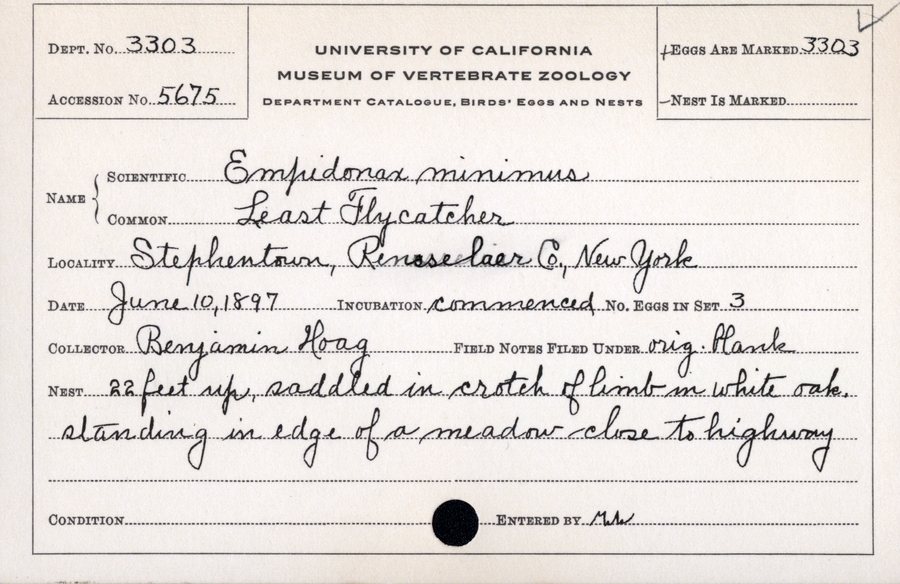 DEPT. No. 3303
ACCESSION No. 5675
UNIVERSITY OF CALIFORNIA
MUSEUM OF VERTEBRATE ZOOLOGY
DEPARTMENT CATALOGUE, BIRDS' EGGS AND NESTS
EGGS ARE MARKED 3303
NEST IS MARKED
NAME
SCIENTIFIC Empidonax minimus
COMMON Least Flycatcher
LOCALITY Stephentown, Rensselaer Co., New York
DATE June 10, 1897 INCUBATION commenced No. EGGS IN SET 3
COLLECTOR Benjamin Hoag FIELD NOTES FILED UNDER orig. blank
NEST 22 feet up, saddled in crotch of limb in white oak.
standing in edge of a meadow close to highway
CONDITION ENTERED BY